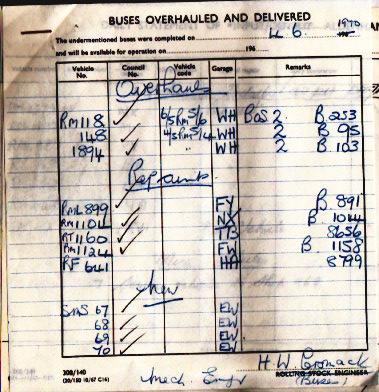 BUSES OVERHAULED AND DELIVERED
The undermentioned buses were completed on 4. 6. 1970
and will be available for operation on 196
Vehicle No. Council No. Vehicle code Garage Remarks
Overhauls
RM1118 ✓ 6/5Rm5/6 WH BOS 2. B.253
148 ✓ 4/5Rm5/4 WH 2 B 95
1894 ✓ WH 2 B 103
Repaints
RML 899 ✓ FY B. 891
RM 1104 ✓ NX B. 1044
RT 1160 ✓ TB 8656
RM 1124 ✓ FW B. 1158
RF 641 HH 8799
New
SMS 67 ✓ EW
68 ✓ EW
69 ✓ EW
70 ✓ EW
H.W. Cromack
308/140
(20/150 10/67 C16)
ROLLING STOCK ENGINEER
Mech. Engr (Buses)